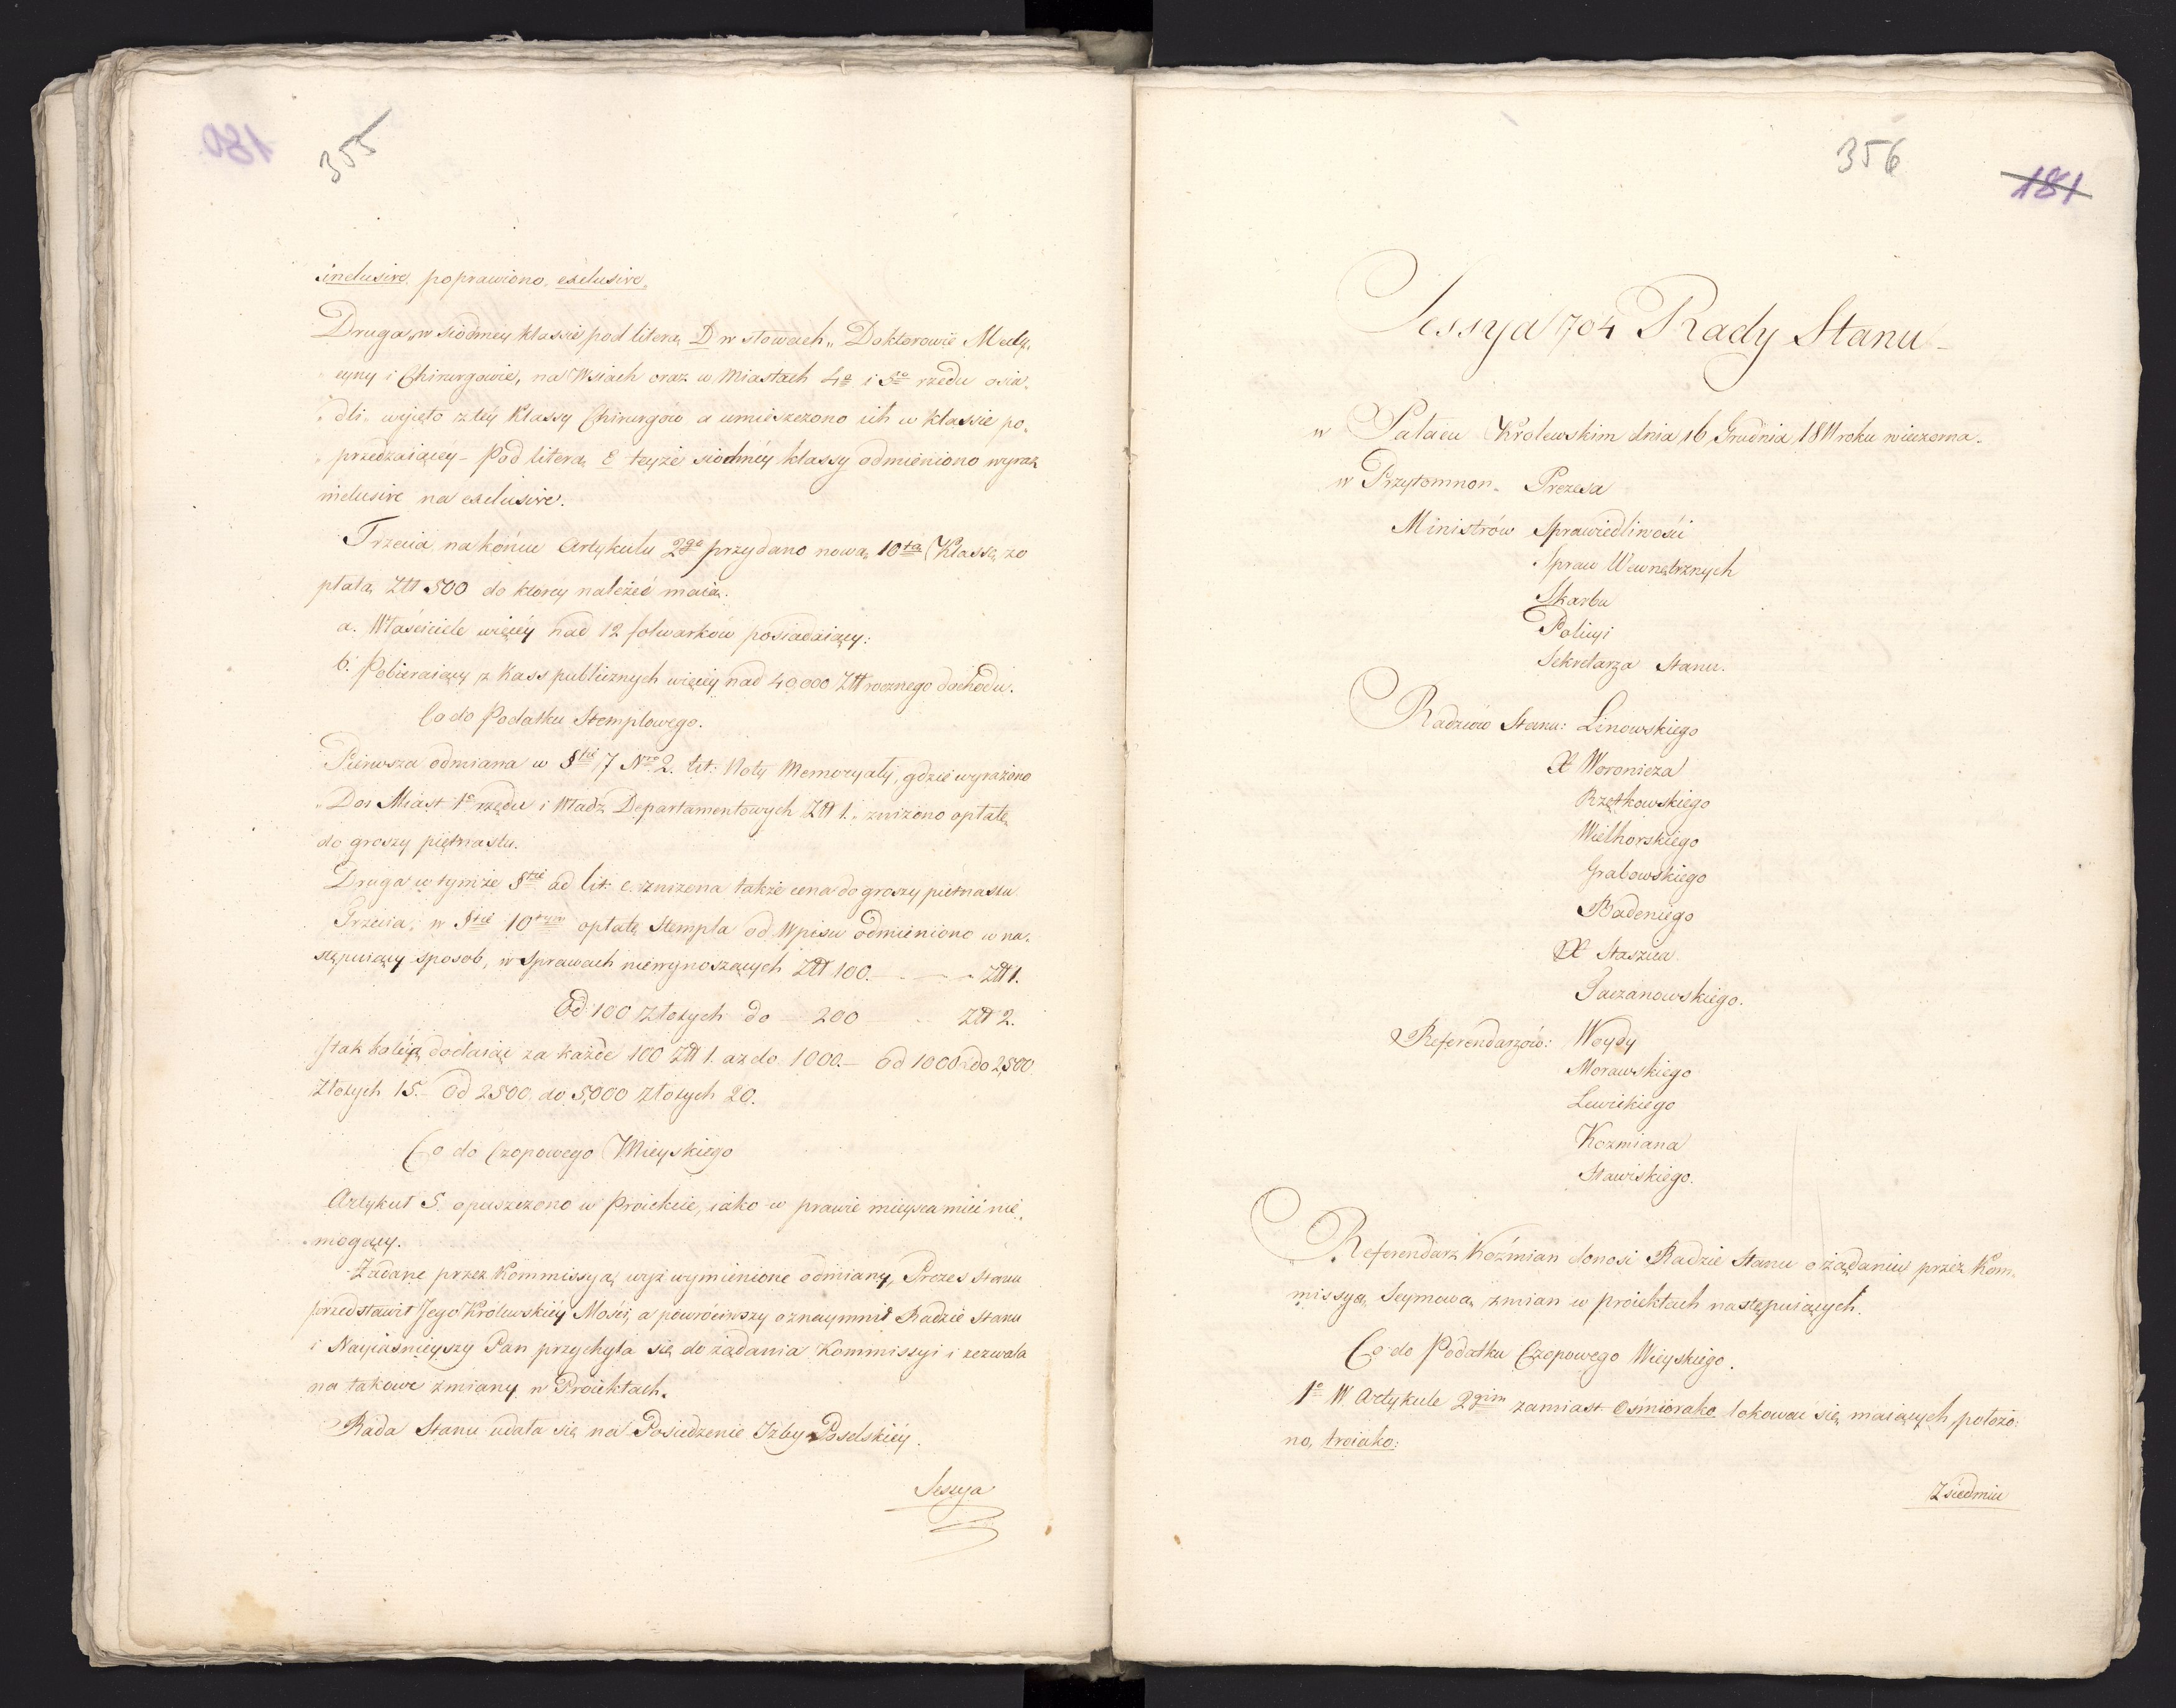 355
inclusive, poprawiono, exclusive.
Druga, w siodmey klassie pod literą D w słowach „Doktorowie Medy„
„cyny i Chirurgowie, na Wsiach oraz w Miastach 4o i 5o rzędu osia„
„dli„ wyięto z tey Klassy Chirurgów a umieszczono ich w klassie po„
„przedzaiącéy - Pod literą E teyże siodméy klassy odmieniono wyraz
inclusive na exclusive.
Trzecia na końcu Artykułu 2go przydano nową 10tą Klassę, zo
płatą Złł 500 do którey należeć maią.
a. Właściciele więcéy nad 12 folwarków posiadaiący:
b. Pobieraiący z Kass publicznych więcéy nad 40,000 Złł rocznego dochodu.
Co do Podatku Stemplowego.
Pierwsza odmiana w §fie 7 Nro 2. lit: Noty Memoryały, gdzie wyrażono
„Dos Miast 1o rzędu i Władz Departamentowych Złł 1„ zniżono opłatę
do groszy piętnastu.
Druga w tymże §fie ad lit: c. zniżona także cena do groszy piętnastu
Trzecia, w §fie 10tym opłatę Stempla od Wpisu odmieniono w na„
stępuiący sposob, w Sprawach niewynoszących Złł 100. - - - Złł 1.
Od 100 Złotych do - 200 - - Złł 2.
i tak koleią dodaiąc za każde 100 Złł 1. aż do 1000. - Od 1000 do 2,500
Złotych 15. - Od 2500. do 5,000 Złotych 20.
Co do Czopowego Mieyskiego
Artykuł 5. opuszczono w Proiekcie, iako w prawie mieysca mieć nie„
„mogący.
Żądane przez Kommissyą wyż wymienione odmiany, Prezes Stanu
przedstawił Jego Królewskiéy Mości, a powróciwszy oznaymnił Radzie Stanu
i Nayiaśnieyszy Pan przychyla się do żądania Kommissyi i zezwala
na takowe zmiany w Proiektach.
Rada Stanu udała się na Posiedzenie Izby Poselskiéy.
Sessya
356
181
Sessya 704 Rady Stanu -
w Pałacu Królewskim dnia 16 Grudnia 1811 roku wieczorna.
w Przytomnon. Prezesa
Ministrów Sprawiedliwości
Spraw Wewnętrznych
Skarbu
Policyi
Sekretarza Stanu.
Radzców Stanu: Linowskiego
X Woronicza
Rzętkowskiego
Wielhorskiego
Grabowskiego
Badeniego
X Staszica.
Taczanowskiego.
Referendarzów: Woydy
Morawskiego
Lewickiego
Kozmiana
Stawiskiego.
Referendarz Koźmian donosi Radzie Stanu o żądaniu przez Kom„
missyą Seymową zmian w proiektach następuiących.
Co do Podatku Czopowego Wieyskiego.
1o W Artykule 2gim zamiast Ośmiorako lokować się maiących, położo:
no, troiako:
Z siedmiu